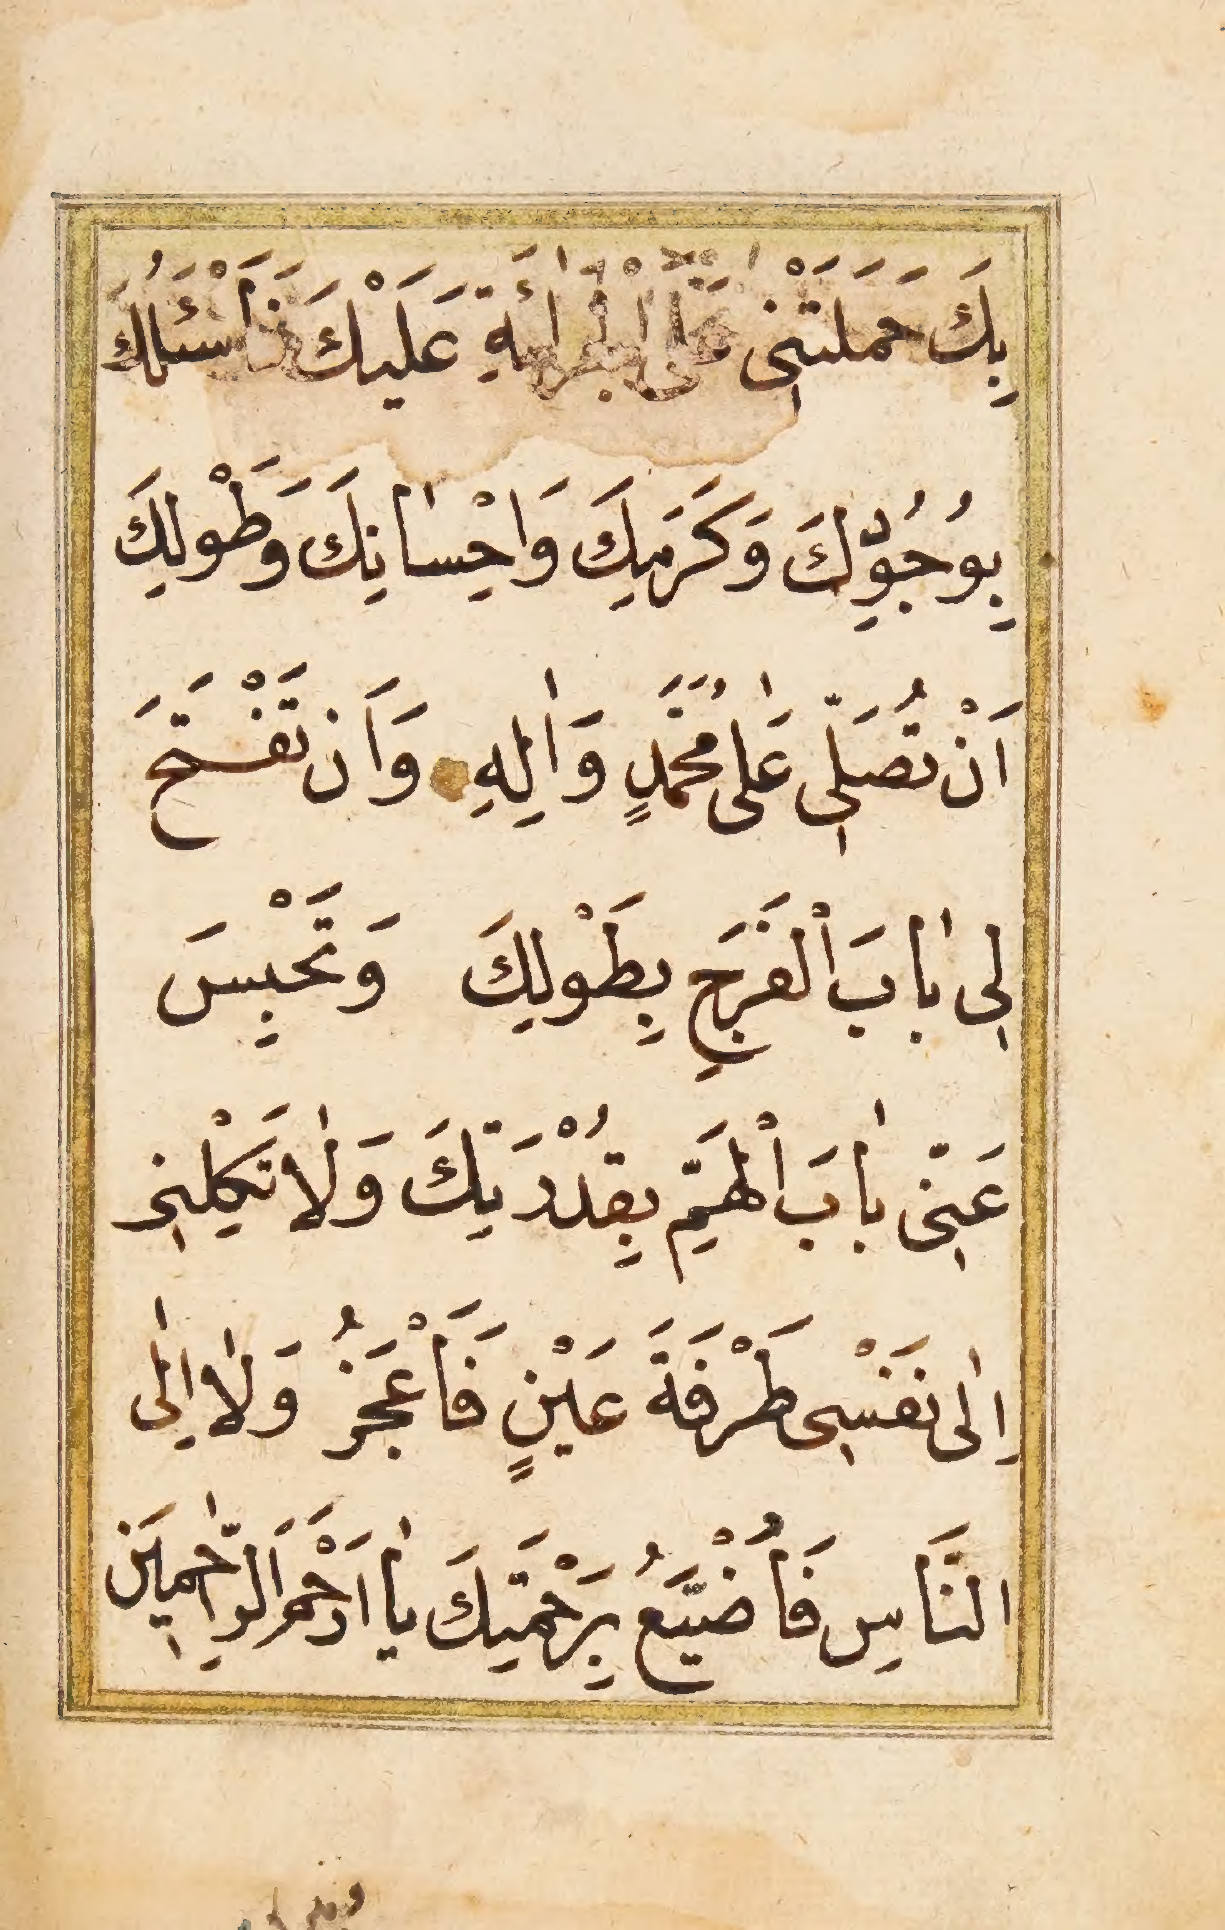 بِكَ حَمَلَتْنِی عَلَی الْجُرْأَةِ عَلَيْكَ فَاَسْئَلُكَ
بِوُجُوْدِكَ وَكَرَمِكَ وَاِحْسٰانِكَ وَطَوْلِكَ
اَنْ تُصَلِّیَ عَلٰی مُحَمَّدٍ وَاٰلِهِ وَاَن تَفْتَحَ
لِی بٰابَ الْفَرَجِ بِطَوْلِكَ وَتَحْبِسَ
عَنّی بٰابَ الْهَمِّ بِقُدْرَتِكَ وَلٰا تَكِلْنِی
اِلٰی نَفْسِی طَرْفَةَ عَيْنٍ فَاَعْجَزُ وَلٰا اِلَی
النَّاسِ فَاُضْيَّعُ بِرَحْمَتِكَ يٰا اَرْحَمَ الرّٰاحِمِيَن